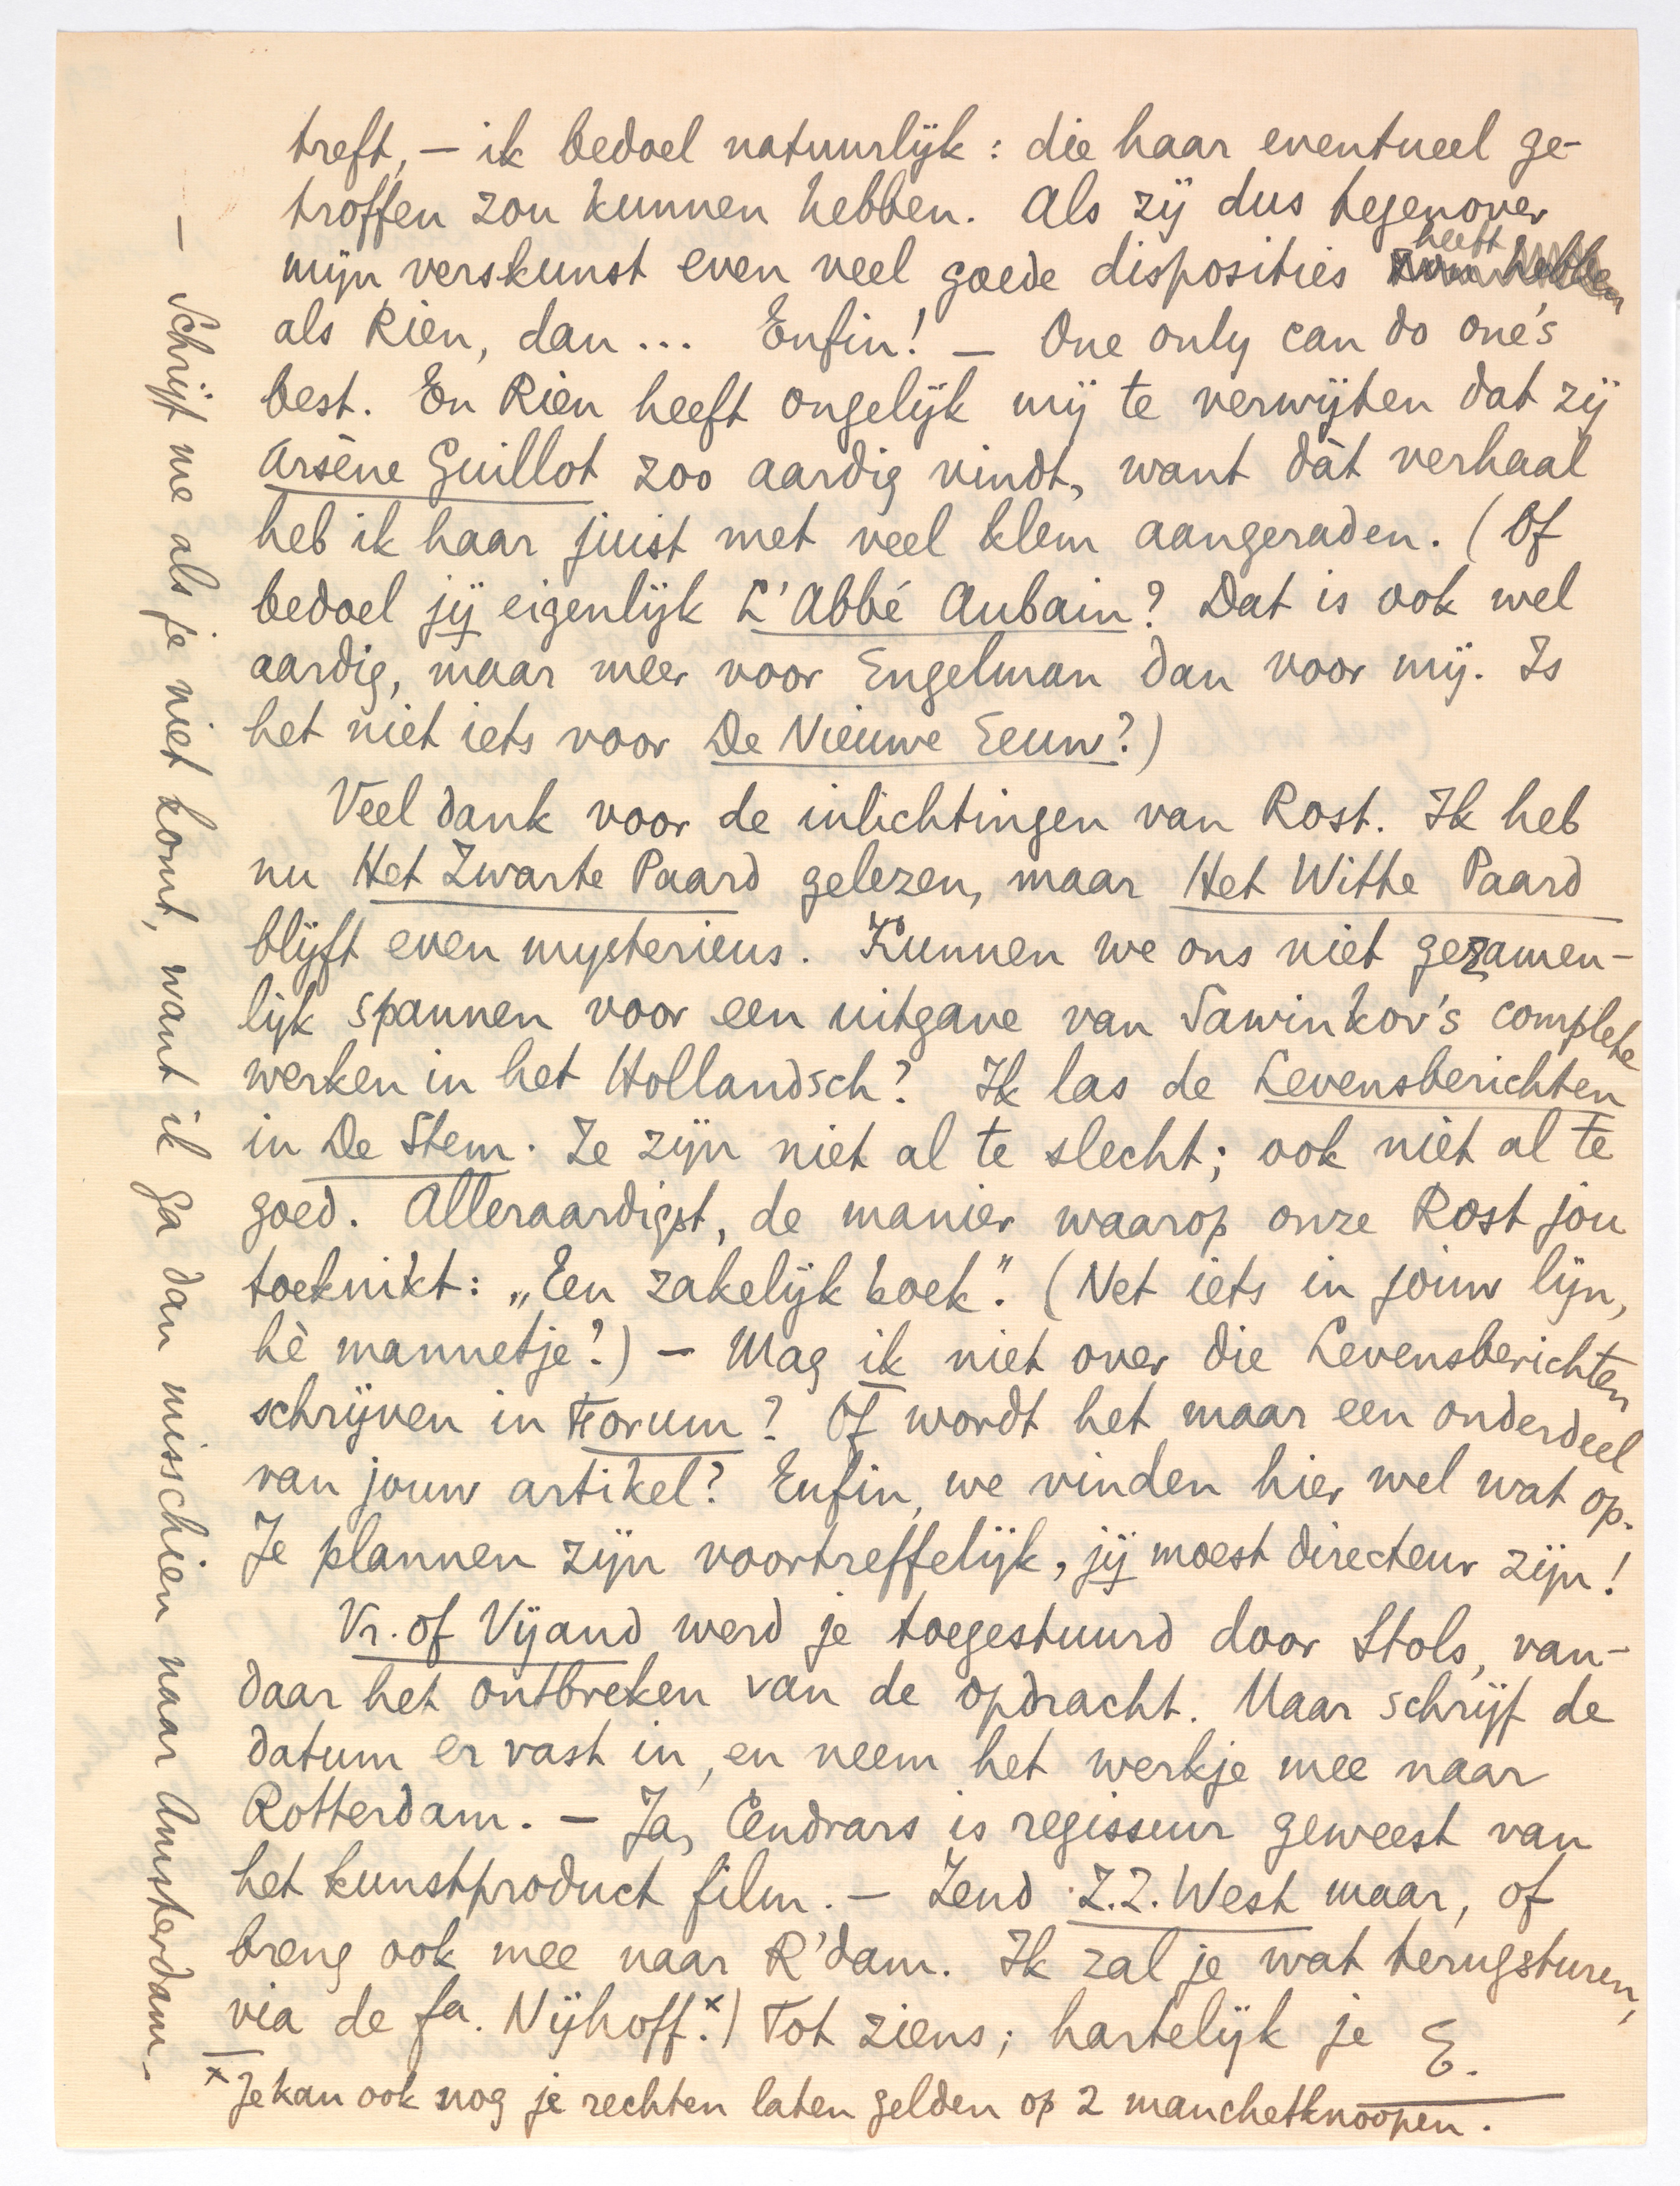 treft, — ik bedoel natuurlijk : die haar eventueel ge-
troffen zou kunnen hebben. Als zij dus tegenover
mijn verskunst even veel goede disposities heeft
als Rien, dan... Enfin! — One only can do one's
best. En Rien heeft ongelijk mij te verwijten dat zij
Arsène Guillot zoo aardig vindt, want dàt verhaal
heb ik haar juist met veel klem aangeraden. (Of
bedoel jij eigenlijk L'Abbé Aubain? Dat is ook wel
aardig, maar meer voor Engelman dan voor mij. Is
het niet iets voor De Nieuwe Eeuw?)
Veel dank voor de inlichtingen van Rost. Ik heb
nu Het Zwarte Paard gelezen, maar Het Witte Paard
blijft even mysterieus. Kunnen we ons niet gezamen-
lijk spannen voor een uitgave van Sawinkov's complete
werken in het Hollandsch? Ik las de Levensberichten
in De Stem. Ze zijn niet al te slecht; ook niet al te
goed. Alleraardigst, de manier waarop onze Rost jou
toeknikt: „Een zakelijk boek". (Net iets in jouw lijn,
hè mannetje?) — Mag ik niet over die Levensberichten
schrijven in Forum? Of wordt het maar een onderdeel
van jouw artikel? Enfin, we vinden hier wel wat op.
Je plannen zijn voortreffelijk, jij moest directeur zijn!
Vr. of Vijand werd je toegestuurd door Stols, van-
daar het ontbreken van de opdracht. Maar schrijf de
datum er vast in, en neem het werkje mee naar
Rotterdam. — Ja, Cendrars is regisseur geweest van
het kunstproduct film. — Zend Z.Z. West maar, of
breng ook mee naar R'dam. Ik zal je wat terugsturen,
via de fa. Nijhoff.x) Tot ziens; hartelijk je E.
x Je kan ook nog je rechten laten gelden op 2 manchetknoopen.
— Schrijf me als je niet komt, want ik ga dan misschien naar Amsterdam. —